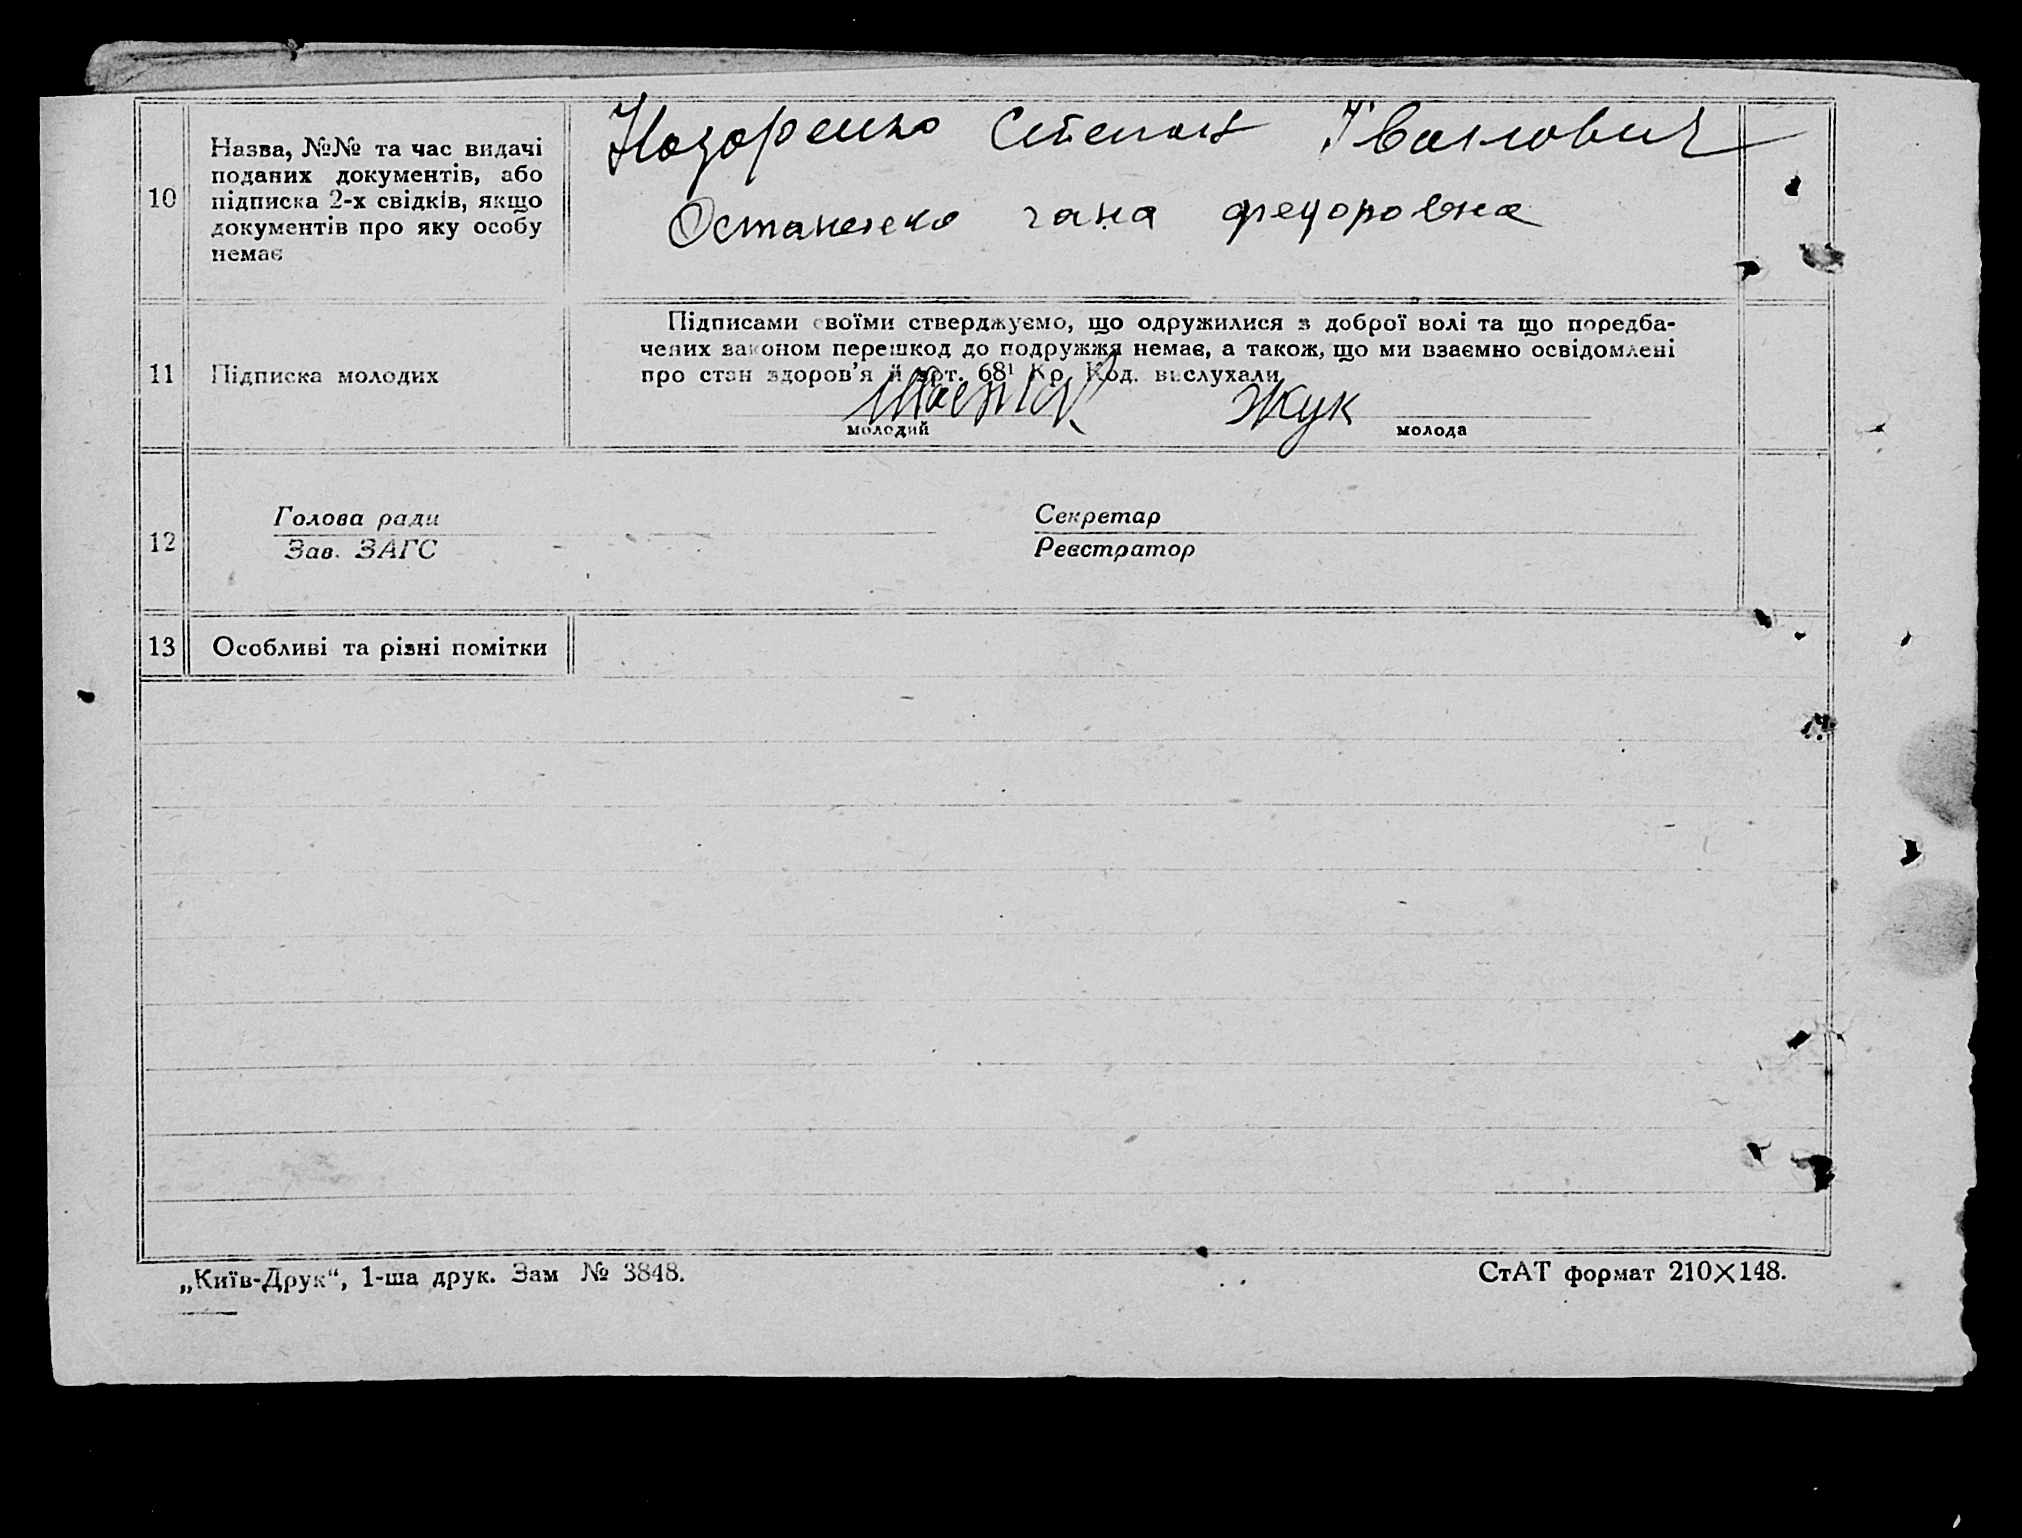 10
Назва, №№ та час видачі
поданих документів, або
підписка 2-х свідків, якщо
документів про яку особу
немає
Назаренко Степан Іванович
Останенко гана федоровна
11
Підписка молодих
Підписами своїми стверджуємо, що одружилися з доброї волі та що передба-
чених законом перешкод до подружжя немає, а також, що ми взаємно освідомлені
про стан здоров'я й арт. 68¹ Кр. Код. вислухали
Жук
молодий
молода
12
Голова ради
Зав. ЗАГС
Секретар
Реєстратор
13
Особливі та різні помітки
„Київ-Друк“, 1-ша друк. Зам № 3848.
СтАТ формат 210×148.